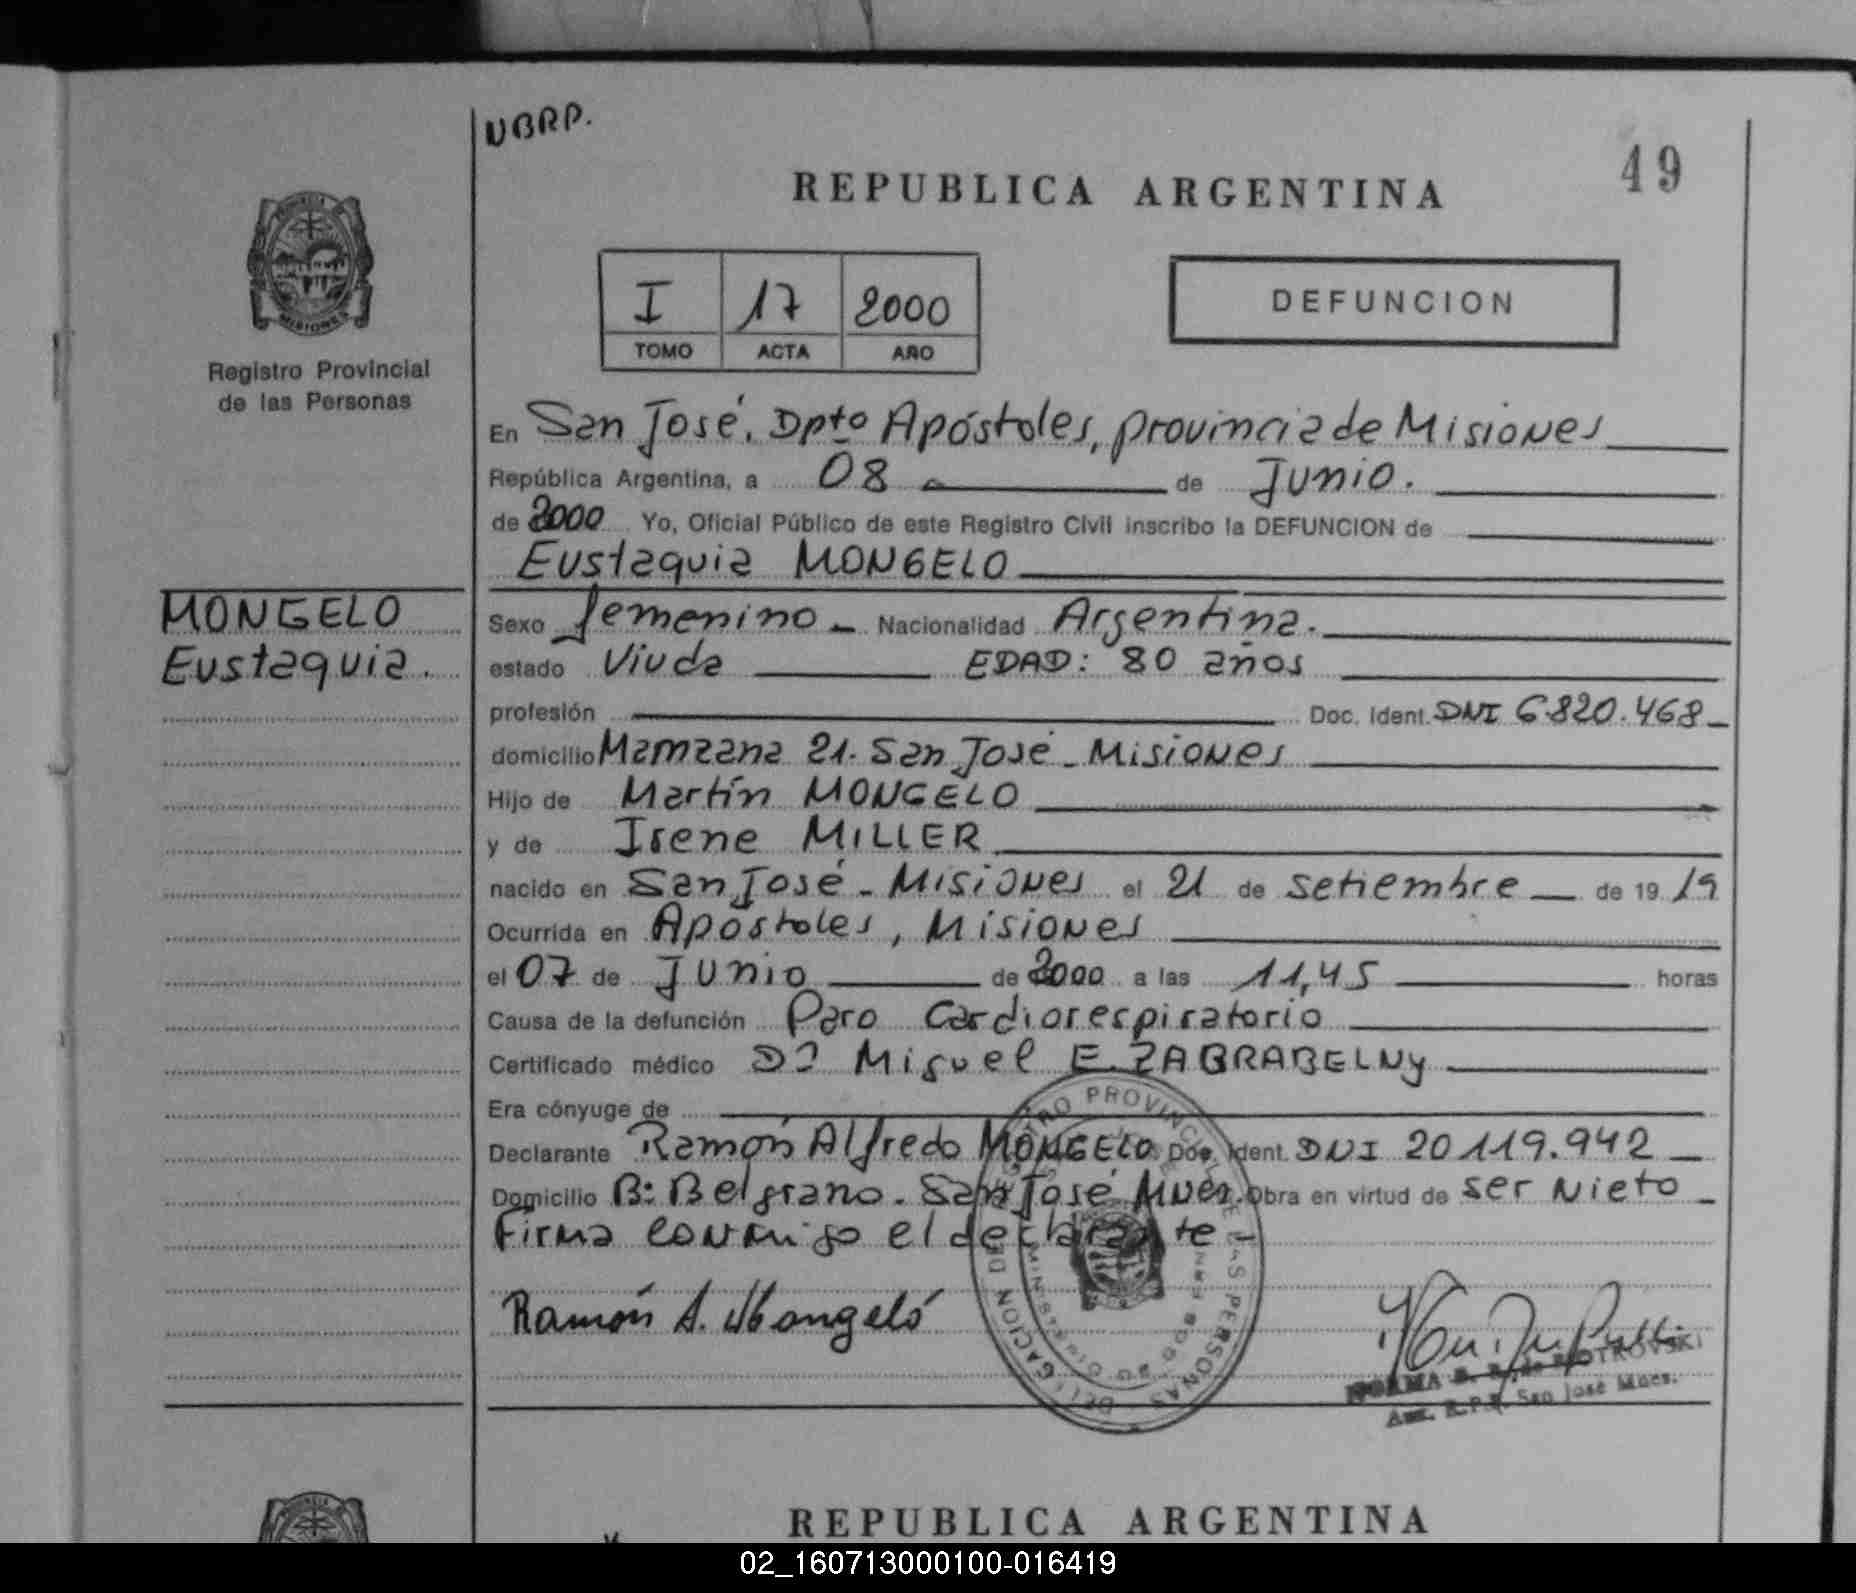 NBRP.
REPUBLICA ARGENTINA
49
I 17 2000
TOMO ACTA AÑO
DEFUNCION
PROVINCIA DE
MISIONES
Registro Provincial
de las Personas
En San José, Dpto Apóstoles, provincia de Misiones
República Argentina, a 08 de Junio.
de 2000 Yo, Oficial Público de este Registro Civil inscribo la DEFUNCION de
Eustaquia MONGELO
MONGELO
Eustaquia.
Sexo femenino Nacionalidad Argentina.
estado Viuda EDAD: 80 años
profesión Doc. Ident. DNI 6.820.468
domicilio Manzana 21. San José - Misiones
Hijo de Martín MONGELO
y de Irene MILLER
nacido en San José - Misiones el 21 de setiembre de 19 19
Ocurrida en Apóstoles, Misiones
el 07 de Junio de 2000 a las 11,45 horas
Causa de la defunción Paro Cardiorespiratorio
Certificado médico Dr Miguel E. ZABRABELNY
Era cónyuge de
Declarante Ramón Alfredo MONGELO Doc. Ident. DNI 20.119.942
Domicilio B: Belgrano. San José Mnes. Obra en virtud de ser Nieto
Firma conmigo el declarante
Ramón A. Mongeló
DELEGACION DEL REGISTRO PROVINCIAL DE LAS PERSONAS
NORMA B. R. de PIOTROVSKI
Aux. R.P.P. San José Mnes.
REPUBLICA ARGENTINA
02_160713000100-016419